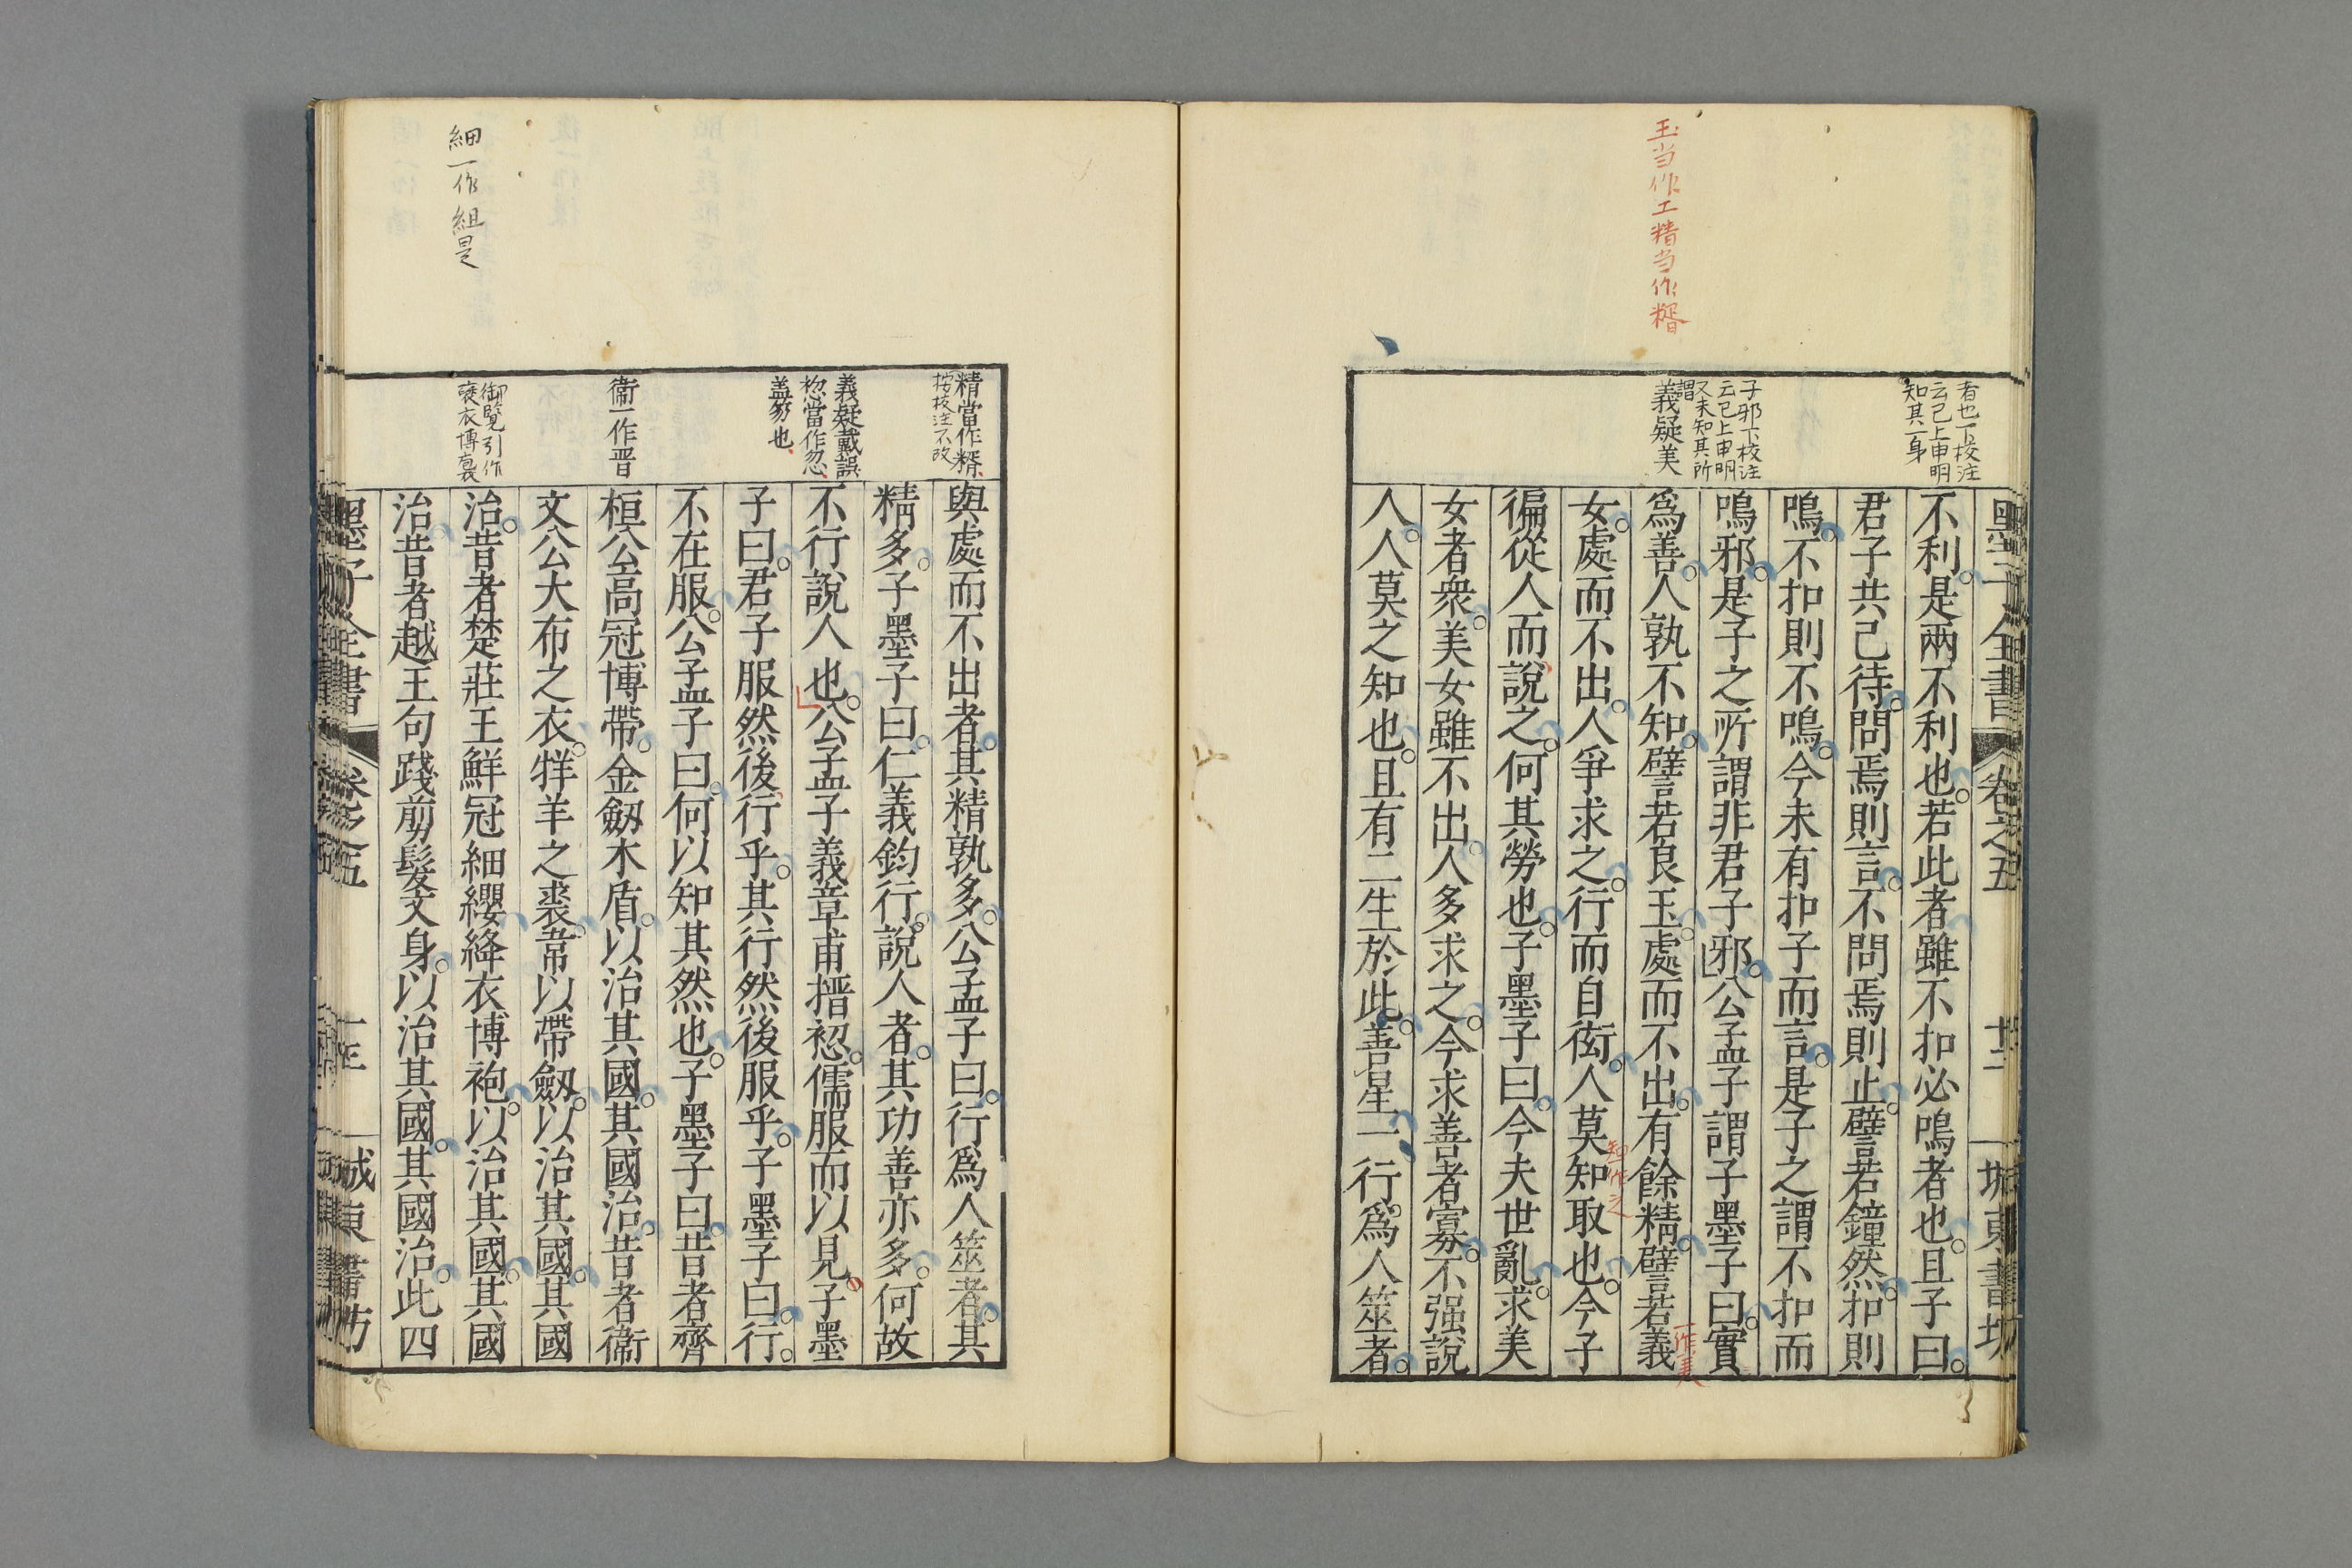 墨子全書
卷之五
廿二
城東書坊
者也下校注
云已上申明
知其一身
子邪下校注
云已上申明
又未知其所
謂
義疑美
玉当作工精当作糈
不利是兩不利也若此者雖不扣必鳴者也且子曰
君子共己待問焉則言不問焉則止譬若鐘然扣則
鳴不扣則不鳴今未有扣子而言是子之謂不扣而
鳴邪是子之所謂非君子邪公孟子謂子墨子曰實
為善人孰不知譬若良玉處而不出有餘精譬若義
一作美
女處而不出人爭求之行而自衒人莫知取也今子
知作之
徧從人而說之何其勞也子墨子曰今夫世亂求美
女者衆美女雖不出人多求之今求善者寡不强說
人人莫之知也且有二生於此善星一行爲人筮者
精當作糈
按校注不改
義疑戴誤
惚當作忽
蓋笏也
衞一作晋
御覧引作
褒衣博裒
細一作組是
與處而不出者其精孰多公孟子曰行爲人筮者其
精多子墨子曰仁義鈞行說人者其功善亦多何故
不行說人也公孟子義章甫搢惚儒服而以見子墨
子曰君子服然後行乎其行然後服乎子墨子曰行
不在服公孟子曰何以知其然也子墨子曰昔者齊
桓公高冠博帶金劔木盾以治其國其國治昔者衞
文公大布之衣牂羊之裘韋以帶劔以治其國其國
治昔者楚莊王鮮冠細纓絳衣博袍以治其國其國
治昔者越王句踐剪髮文身以治其國其國治此四
墨子全書
卷之五
城東書坊